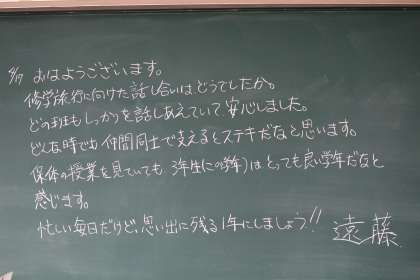 5/17 おはようございます。
修学旅行に向けた話し合いはどうでしたか。
どの班もしっかりを話しあえていて安心しました。
どんな時でも仲間同士で支えるとステキだなと思います。
保体の授業を見ていても3年生(この学年)はとっても良い学年だなと
感じます。
忙しい毎日だけど、思い出に残る1年にしましょう!! 遠藤